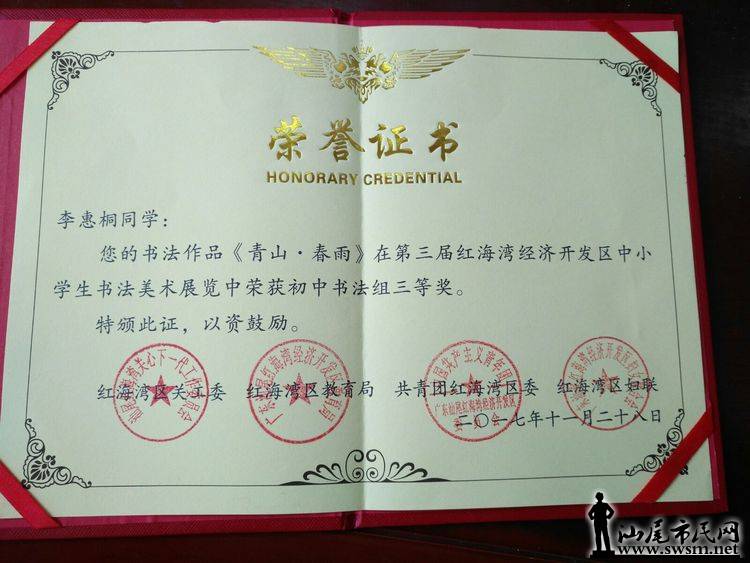 荣誉证书
HONORARY CREDENTIAL
李惠桐同学：
您的书法作品《青山·春雨》在第三届红海湾经济开发区中小
学生书法美术展览中荣获初中书法组三等奖。
特颁此证，以资鼓励。
红海湾区关工委 红海湾区教育局 共青团红海湾区委 红海湾区妇联
二〇一七年十一月二十八日
广东汕尾红海湾经济开发区
汕尾市民网
www.swsm.net